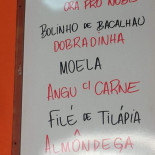 ORA PRO NOBIS
BOLINHO DE BACALHAU
DOBRADINHA
MOELA
ANGU C/ CARNE
FILÉ DE TILÁPIA
ALMÔNDEGA